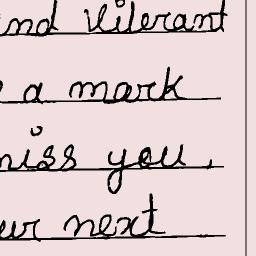 and vibrant
a mark
miss you,
our next